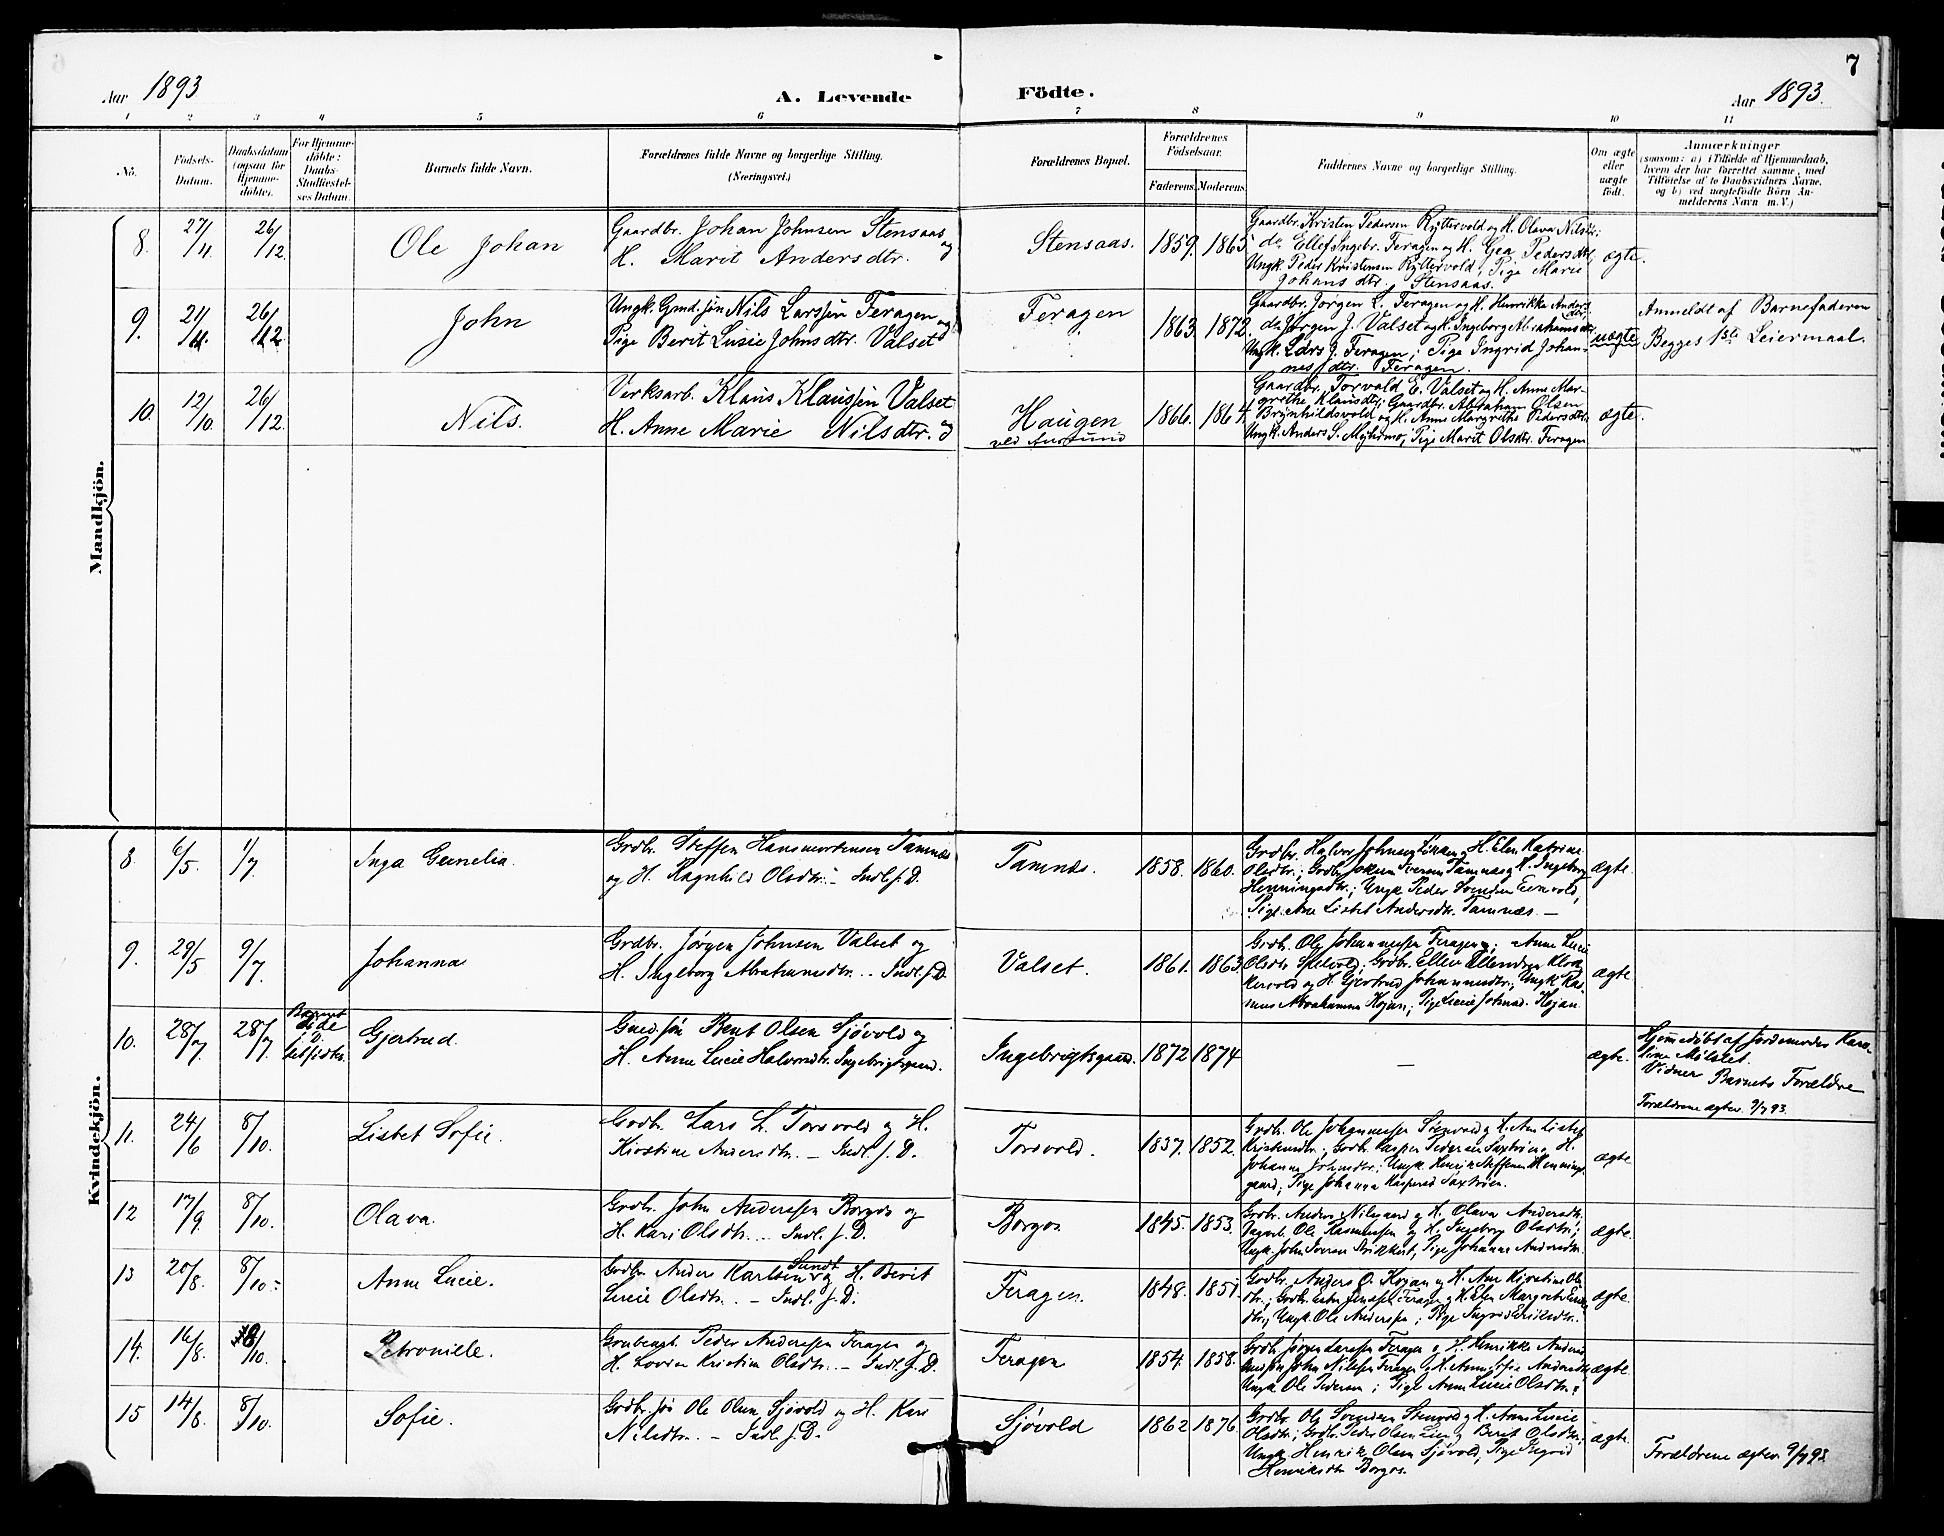 7
Aar 1893
A. Levende Födte.
Aar 1893.
1 2 3 4 5 6 7 8 9 10 11
No.
Födsels-
Datum.
Daabsdatum
(ogsaa for
Hjemme-
döbte).
For Hjemme-
döbte:
Daabs-
Stadfæstel-
ses Datum.
Barnets fulde Navn.
Forældrenes fulde Navne og borgerlige Stilling.
(Næringsvei.)
Forældrenes Bopæl.
Forældrenes
Födselsaar.
Faderens. Moderens.
Faddernes Navne og borgerlige Stilling.
Om ægte
eller
uægte
födt.
Anmærkninger
(saasom: a) i Tilfælde af Hjemmedaab,
hvem der har forrettet samme, med
Tilföielse af to Daabsvidners Navne,
og b) ved uægtefödte Börn An-
melderens Navn m. V.)
Mandkjön.
8. 27/11. 26/12.
Ole Johan
Gaardbr. Johan Johnsen Stensaas og
H. Marit Andersdtr.
Stensaas. 1859. 1865
Gaardbr. Kristen Pedersen Ryttervold og H. Olava Nilsdtr;
do Ellef Ingebr. Feragen og H. Gea Pedersdtr;
Ungk. Peder Kristensen Ryttervold; Pige Marie
Johansdtr. Stensaas.
ægte.
9. 21/11. 26/12
John
Ungk. Gmd.søn Nils Larssen Feragen og
Pige Berit Lusie Johnsdtr. Valset
Feragen 1863. 1872.
Gaardbr. Jörgen L. Feragen og H. Henrikke Anders-
dtr;
do Jørgen J. Valset og H. Ingeborg Abrahamsdtr
Ungk. Lars J. Feragen; Pige Ingrid Johan-
nesdtr. Feragen.
uægte
Anmeldt af Barnefaderen
Begges 1ste Leiermaal.
10. 12/10. 26/12.
Nils.
Verksarb. Klaus Klaussen Valset
H. Anne Marie Nilsdtr.
Haugen
ved Aursund
1866. 1864.
Gaardbr. Torvald E. Valset og H. Anne Mar-
grethe Klausdtr; Gaardbr. Abraham Olsen
Brynhildsvold og H. Anne Margrethe Pedersdtr.
Ungk. Anders S. Myhrmo; Pige Marit Olsdtr. Feragen
ægte.
Kvindekjön.
8. 6/5. 1/7.
Inga Gunelia.
Grdbr. Steffen Hansmortensen Tamnæs
og H. Ragnhild Olsdtr. – Indl. f. D.
Tamnæs. 1858. 1860.
Olsdtr.; Grdbr. Jokum Iversen Tamnæs og H. Ingeborg
Henningsdtr.; Ungk. Peder
Pige Ane Lisbet Andersdtr. Tamnæs. –
ægte.
9. 29/5 9/7.
Johanna
Grdbr. Jørgen Johnsen Valset og
H. Ingeborg Abrahamsdtr. – Indl. f. D.
Valset. 1861. 1863.
Grdbr. Ole Johannessen Feragen og Anne Lucie
H. Gjertrud Johannesdtr.; Ungk. Ras-
mus Abrahamsen Kojan; Pige Lucie Johnsd. Kojan.
ægte
10. 28/7 28/7.
Barnet
døde
Gjertrud.
Gmdsøn Bent Olsen Sjövold og
H. Anne Lucie Halvorsdtr. Ingebrigtsgaard.
Ingebrigtsgaard. 1872 1874
–
ægte.
Hjemmedøbt af Jordemoder Karo-
line Mølslet.
Vidner Barnets Forældre
Forældrene ægtev. 9/7 93.
11. 24/6 8/10.
Lisbet Sofie.
Grdbr. Lars L. Torsvold og H.
Kirstine Andersdtr. – Indl. f. D.
Torsvold. 1837. 1852.
Grdbr. Ole Johannessen Stenvold og H. Ane Lisbet
Kristensdtr.; Grdbr. Kasper Pedersen Saxtröen og H.
Johanna Johnsdtr.; Ungk. Henrik Steffensen Hennings-
gaard; Pige Johanna Kaspersd. Saxtröen.
ægte
12 17/9 8/10.
Olava.
Grdbr. John Anderssen Borgos og
H. Kari Olsdtr. – Indl. f. D.
Borgos 1845. 1853.
Grdbr. Anders Nilsgaard og H. Olava Andersdtr.
Ole Rasmussen og H. Ingeborg Olsdtr.;
Ungk. John Iversen Pige Johanna Andersdtr.
ægte.
13 20/8. 8/10.
Anne Lucie.
Grdbr. Anders Karlsen Sundt og H. Berit
Lucie Olsdtr. – Indl. f. D.
Feragen. 1848. 1851.
Grdbr. Anders O. Kojan og H. Ane Kjerstine Ols-
dtr.; Grdbr. Feragen og H. Elen Margrete
dtr.; Ungk. Ole Anderssen; Pige Ingrid
ægte.
14. 16/8. 8/10.
Petronille.
Grubearb. Peder Anderssen Feragen og
H. Lovise Kristine Olsdtr. – Indl. f. D.
Feragen 1854. 1858.
Grdbr. Jørgen Larssen Feragen og H. Henrikke Anders-
Gmdsøn John Nilssen Feragen og H. Anne Sofie Andersdtr.
Ungk. Ole Pedersen; Pige Anne Lucie Olsdtr.
ægte.
15 14/8. 8/10.
Sofie.
Grdbr.søn Ole Olsen Sjövold og H. Kari
Nilsdtr. – Indl. f. D.
Sjövold 1862 1876.
Grdbr. Ole Svendsen Stenvold og H. Anne Lucie
Olsdtr.; Grdbr. Peder Olsen og Berit Olsdtr.;
Ungk. Henrik Olsen Sjövold; Pige Ingrid
Henriksdtr. Borgos.
ægte.
Forældrene ægtev. 9/7 93.